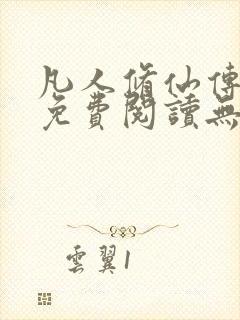 凡人脩仙傳
免費閱讀無
雲翼1